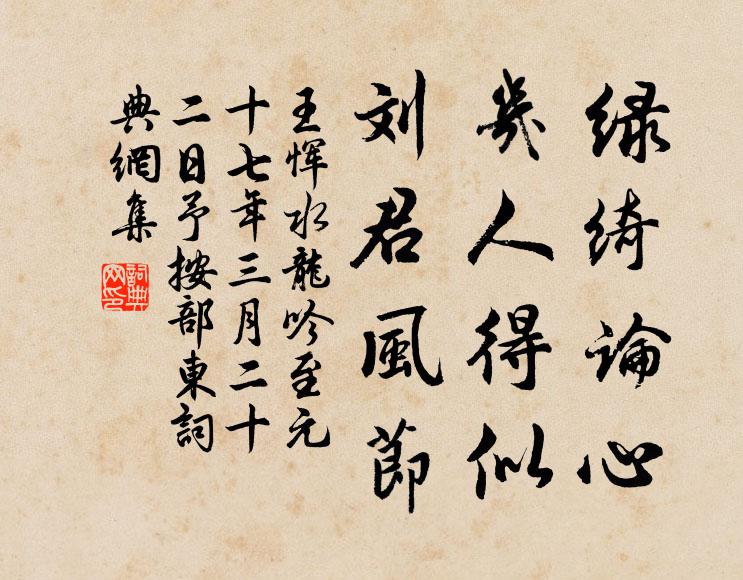 绿绮論心
幾人得似
刘君風節
王惲水龍吟至元
十七年三月二十
二日予按部東詞
典網集
詞典網印